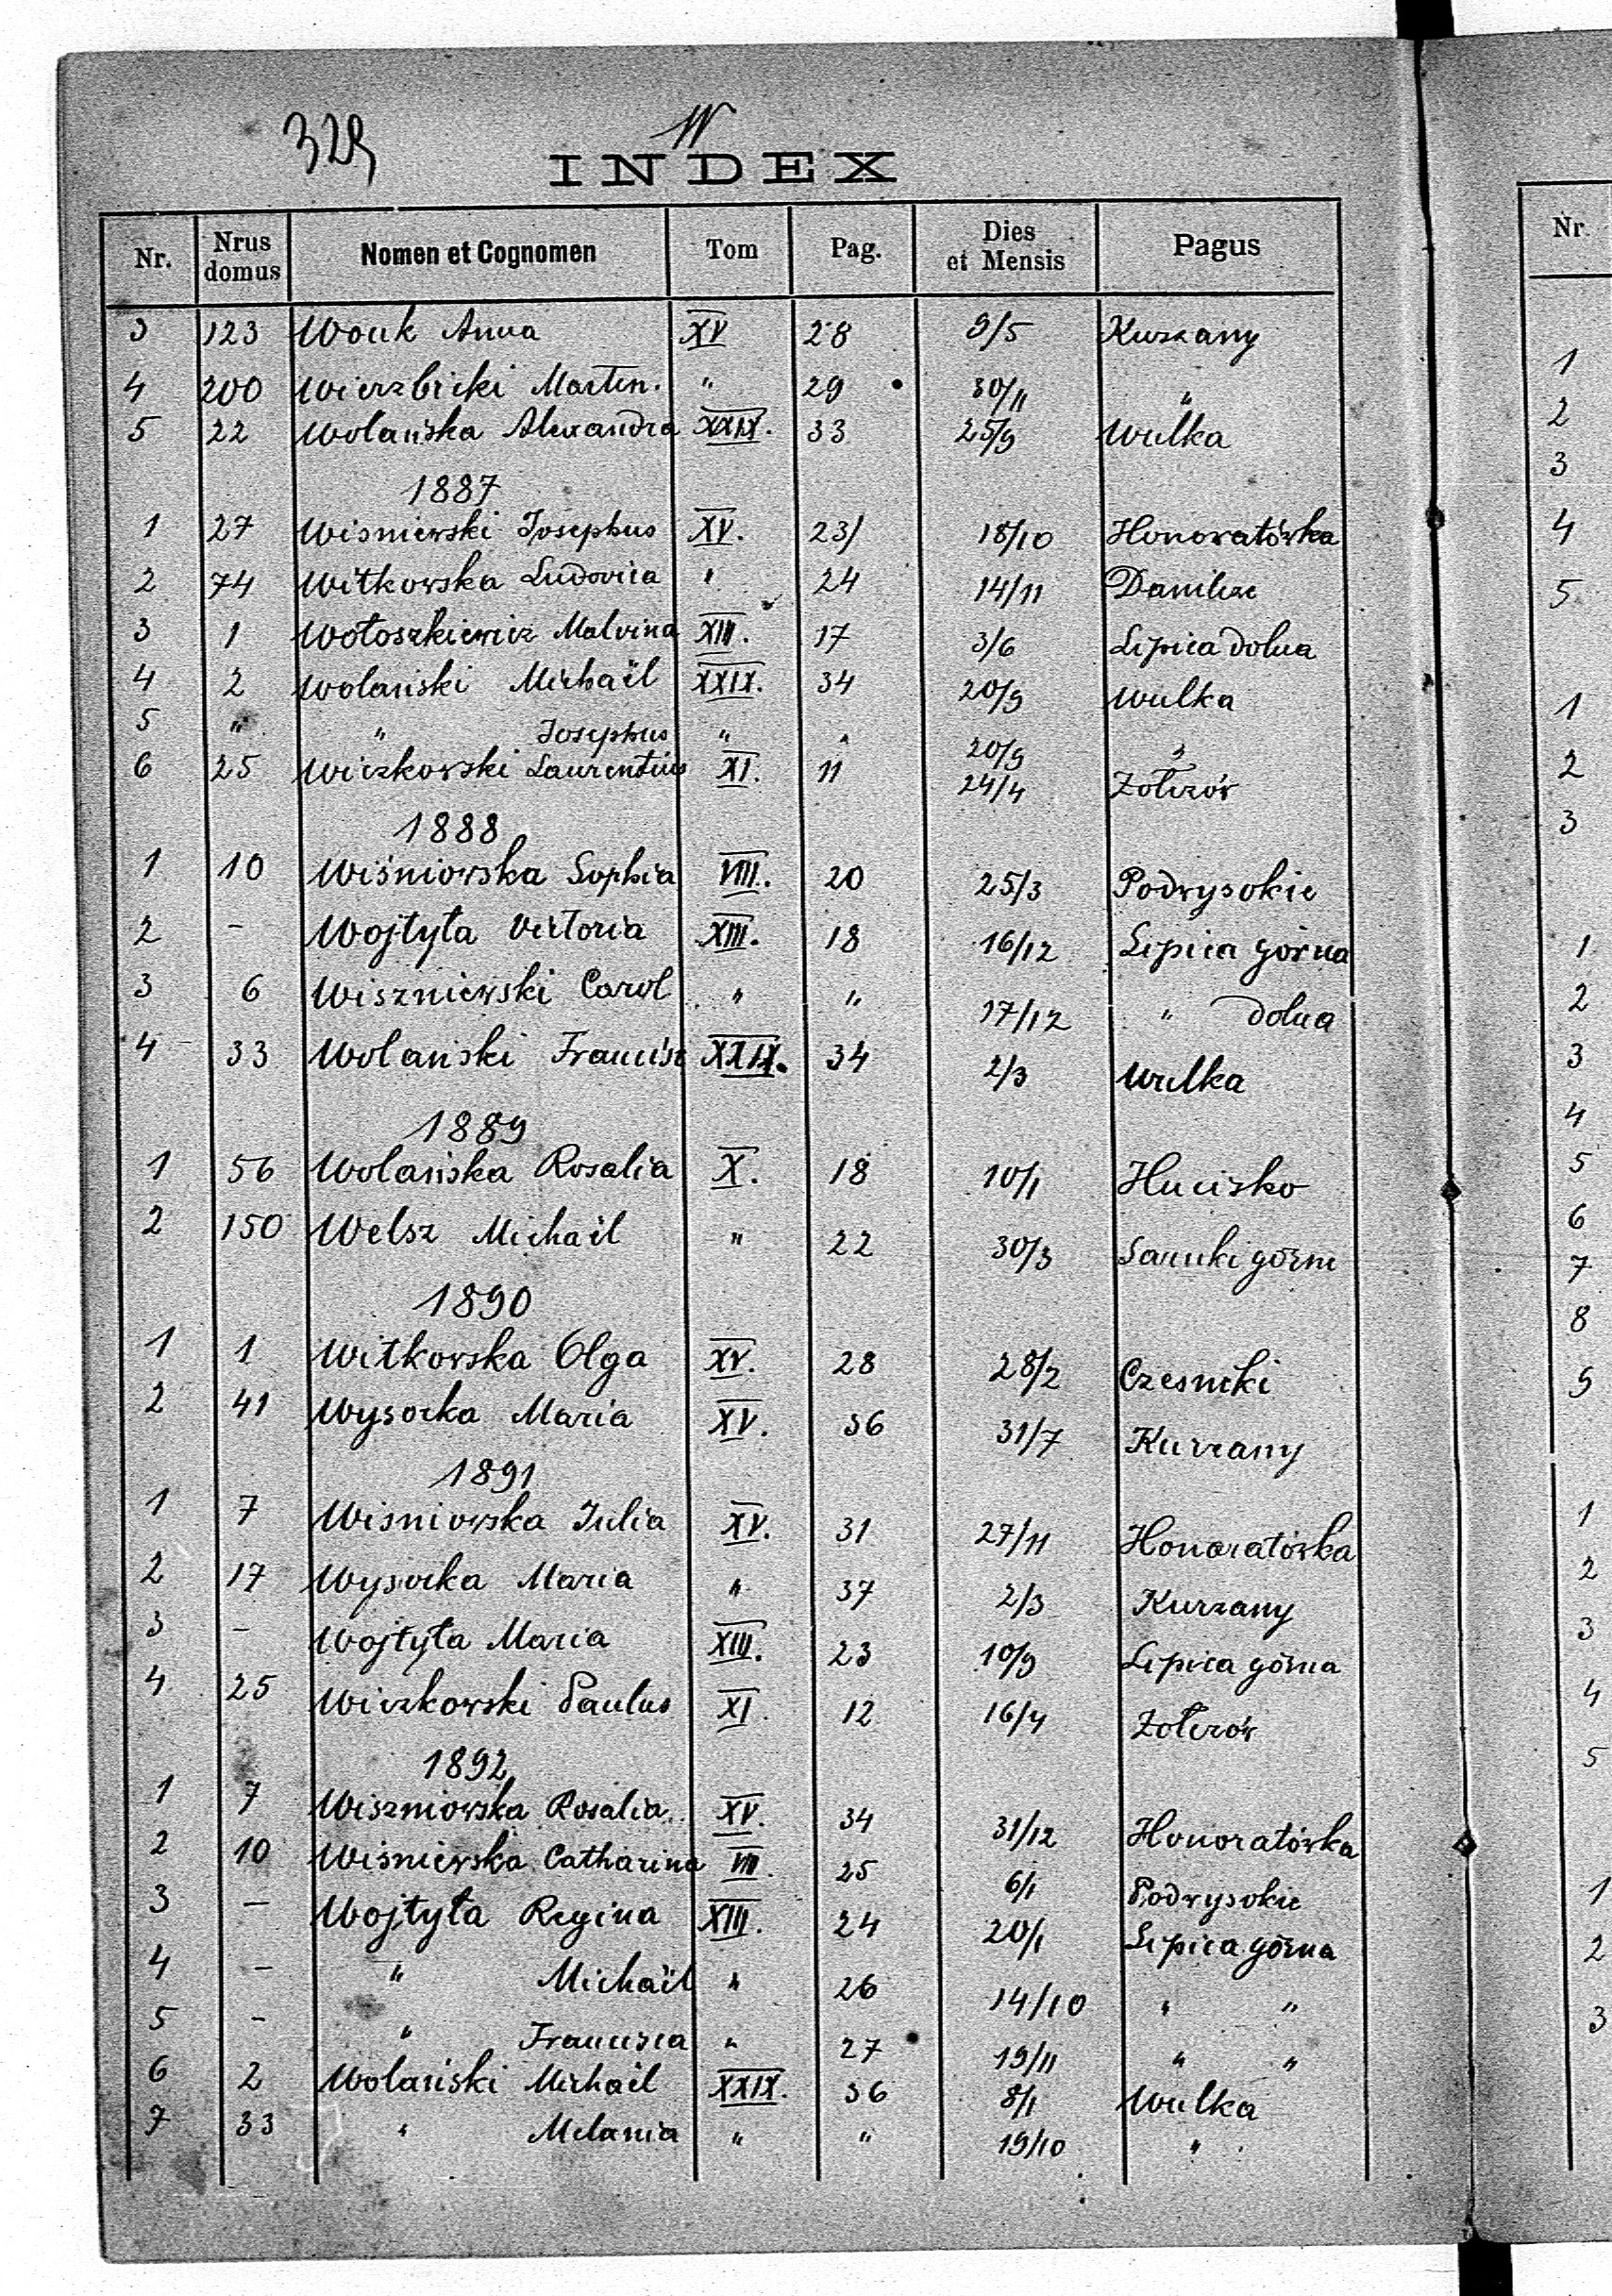 329
W
INDEX
Nr. Nrus domus Nomen et Cognomen Tom Pag. Dies et Mensis Pagus
3 123 Wouk Anna XV 28 9/5 Kurzany
4 200 Wierzbicki Martin. " 29 30/11 "
5 22 Wolańska Alexandra XXIX. 33 25/9 Wulka
1887
1 27 Wisniewski Josephus XV. 23/ 18/10 Honoratówka
2 74 Witkowska Ludovica " 24 14/11 Danilcze
3 1 Wołoszkiewicz Malvina XIII. 17 3/6 Lipica dolna
4 2 Wolański Michaël XXIX. 34 20/9 Wulka
5 " " Josephus " " 20/9 "
6 25 Wiczkowski Laurentius XI. 11 24/4 Żołczów
1888
1 10 Wiśniowska Sophia VIII. 20 25/3 Podwysokie
2 - Wojtyła Victoria XIII. 18 16/12 Lipica górna
3 6 Wiszniewski Carol " " 17/12 " dolna
4 33 Wolański Francisc XXIX. 34 2/3 Wulka
1889
1 56 Wolańska Rosalia X. 18 10/1 Hucisko
2 150 Welsz Michaël " 22 30/3 Sarnki górne
1890
1 1 Witkowska Olga XV. 28 28/2 Czesniki
2 41 Wysocka Maria XV. 36 31/7 Kurzany
1891
1 7 Wisniowska Julia XV. 31 27/11 Honoratówka
2 17 Wysocka Maria " 37 2/3 Kurzany
3 - Wojtyła Maria XIII. 23 10/9 Lipica górna
4 25 Wiczkowski Paulus XI. 12 16/4 Żołczów
1892
1 7 Wiszniowska Rosalia XV. 34 31/12 Honoratówka
2 10 Wiśniewska Catharina VIII. 25 6/1 Podwysokie
3 - Wojtyła Regina XIII. 24 20/1 Lipica górna
4 - " Michaël " 26 14/10 " "
5 - " Francisca " 27 19/11 " "
6 2 Wolański Michaël XXIX. 36 8/1 Wulka
7 33 " Melania " " 19/10 "
Nr.
1
2
3
4
5
1
2
3
1
2
3
4
5
6
7
8
9
1
2
3
4
5
1
2
3